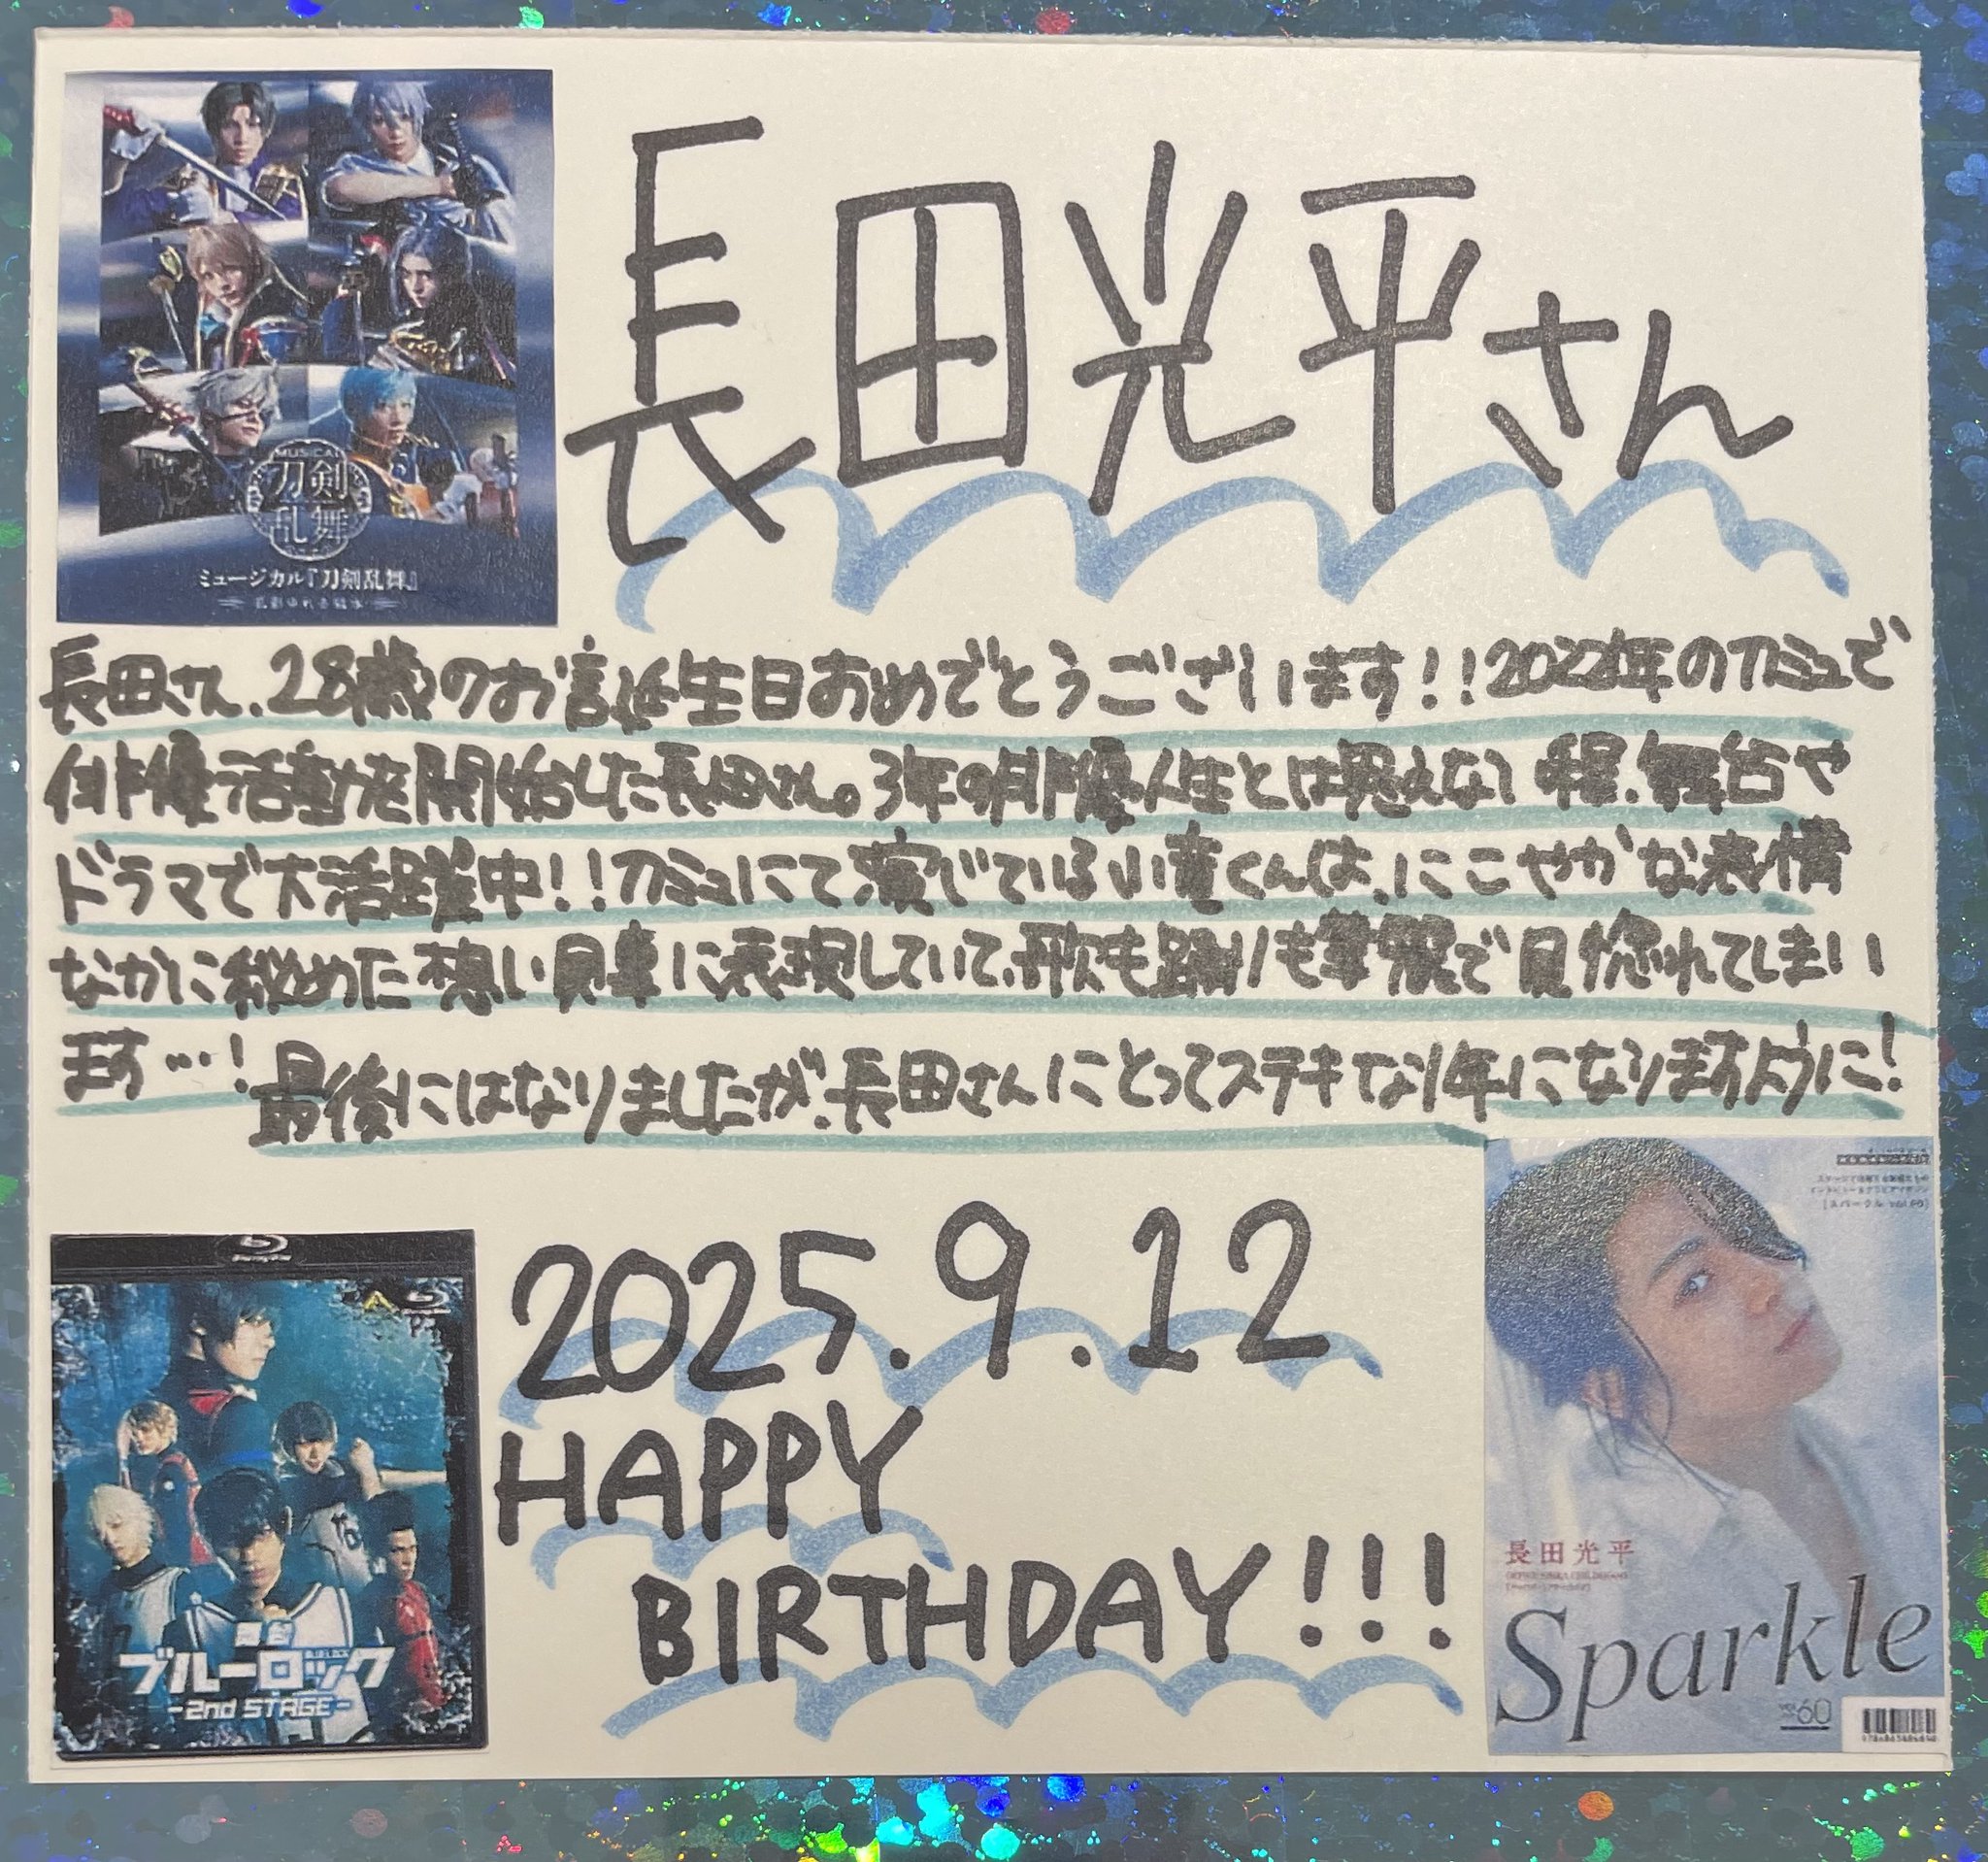 MUSICAL
刀剣
乱舞
ミュージカル『刀剣乱舞』
長田光平さん
長田さん、28歳のお誕生日おめでとうございます!!2022年の刀ミュで
俳優活動を開始した長田さん。3年の俳優人生とは思えない程、舞台や
ドラマで大活躍中!!刀ミュにて演じている小竜くんは、にこやかな表情
なかに秘めた想い見事に表現していて、歌も踊りも華麗で見惚れてしまい
ます…!
最後にはなりましたが、長田さんにとってステキな1年になりますように!
2025.9.12
HAPPY
BIRTHDAY!!!
舞台
ブルーロック
-2nd STAGE-
[スパークル vol.60]
長田光平
Sparkle
vol.60